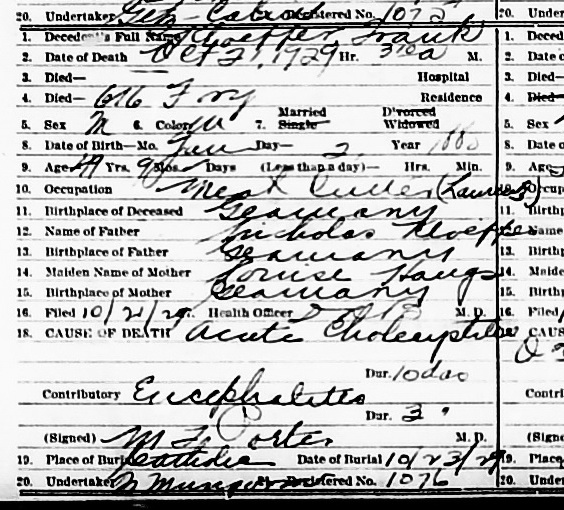 20. Undertaker Registered No. 1075 20. Under
1. Decedent's Full Name Kloepfer Frank 1. Deced
2. Date of Death Oct 21, 1929 Hr. 3 30 a M. 2. Date o
3. Died— Hospital 3. Died—
4. Died— 616 Ivy Residence 4. Died—
Married D'vorced
5. Sex M 6. Color W 7. Single Widowed 5. Sex
8. Date of Birth—Mo. Jan Day— 2, Year 1880 8. Date o
9. Age 49 Yrs. 9 Mos. Days (Less than a day)— Hrs. Min. 9. Age
10. Occupation Meat Cutter 10. Occup
11. Birthplace of Deceased Germany 11. Birth
12. Name of Father Nicholas Kloepfer 12. Name
13. Birthplace of Father Germany 13. Birthp
14. Maiden Name of Mother Louise Haugs 14. Maide
15. Birthplace of Mother Germany 15. Birthp
16. Filed 10/21/29. Health Officer M. D. 16. Filed
18. CAUSE OF DEATH Acute Cholecystitis CAUS
Dur. 10 das
Contributory Encephalitis Contri
Dur. 3 "
(Signed) M. F. Porter M. D. (Sign
19. Place of Burial Catholic Date of Burial 10/23/29 19. Place
20. Undertaker Registered No. 1076 20. Under